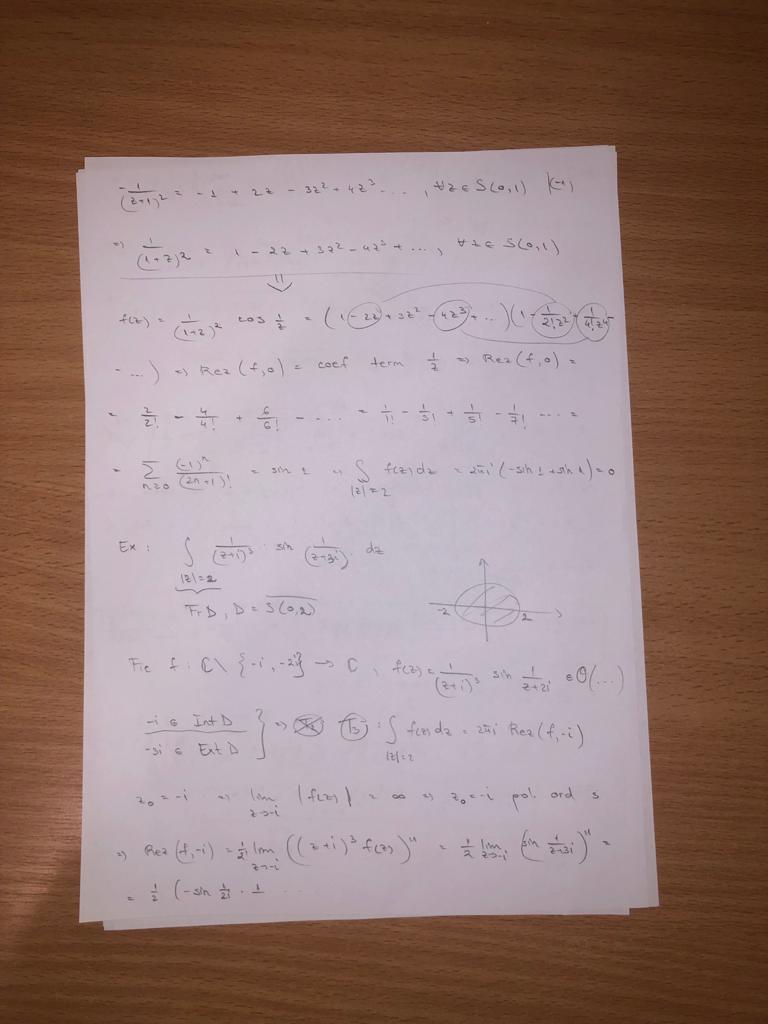 -1/(z+1)² = -1 + 2z - 3z² + 4z³ ... , ∀z ∈ S(0,1) |(-1)
=> 1/(1+z)² = 1 - 2z + 3z² - 4z³ + ... , ∀z ∈ S(0,1)
⇓
f(z) = 1/(1+z)² cos 1/z = (1 - 2z + 3z² - 4z³ + ...)(1 - 1/2!z² + 1/4!z⁴ -
- ...) => Rez(f,0) = coef term 1/z => Rez(f,0) =
= 2/2! - 4/4! + 6/6! - .... = 1/1! - 1/3! + 1/5! - 1/7! .... =
= Σ n≥0 (-1)ⁿ/(2n+1)! = sin 1 => ∫ |z|=2 f(z)dz = 2πi (-sin 1 + sin 1) = 0
Ex: ∫ |z|=2 1/(z+i)³ · sin (1/(z+3i)) dz
Fr D, D = S(0,2)
-2 2
Fie f: C\{-i, -3i} -> C, f(z) = 1/(z+i)³ sin 1/(z+2i) ∈ O(...)
-i ∈ Int D
-3i ∈ Ext D } => : ∫ |z|=2 f(z)dz = 2πi Rez(f,-i)
z₀ = -i => lim z->-i |f(z)| = ∞ => z₀ = -i pol ord 3
=> Rez(f,-i) = 1/2! lim z->-i ((z+i)³ f(z))'' = 1/2 lim z->-i (sin 1/(z+3i))'' =
= 1/2 (-sin 1/2i · 1